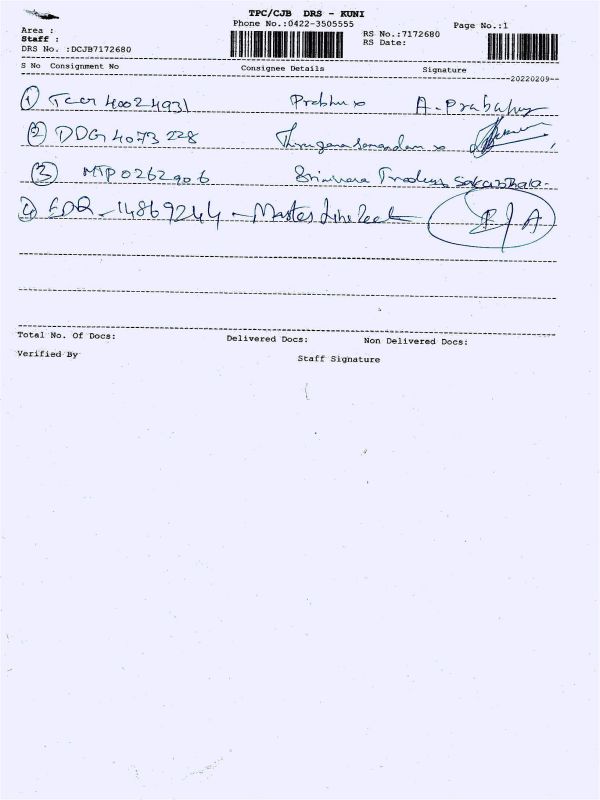 TPC/CJB DRS - KUNI
Phone No.:0422-3505555
Page No.:1
Area :
Staff :
RS No.:7172680
RS Date:
DRS No. :DCJB7172680
S No Consignment No Consignee Details Signature
20220209
① 40024931 Prabhu A. Prabahu
② DDG 4073228
③ MTP 0262906
④ EDR - 14869244 - Master
Total No. Of Docs: Delivered Docs: Non Delivered Docs:
Verified By Staff Signature